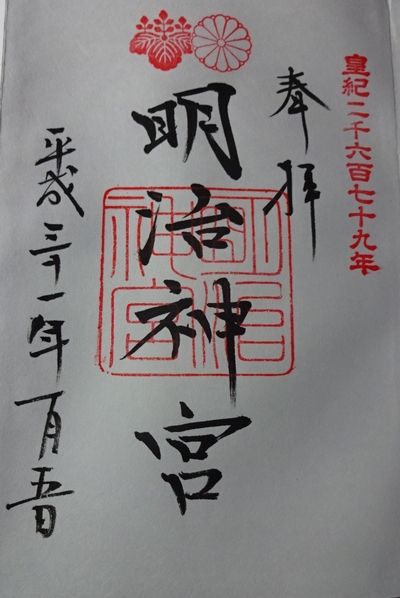 皇紀二千六百七十九年
奉拝
明治神宮
明治神宮
平成三十一年一月五日